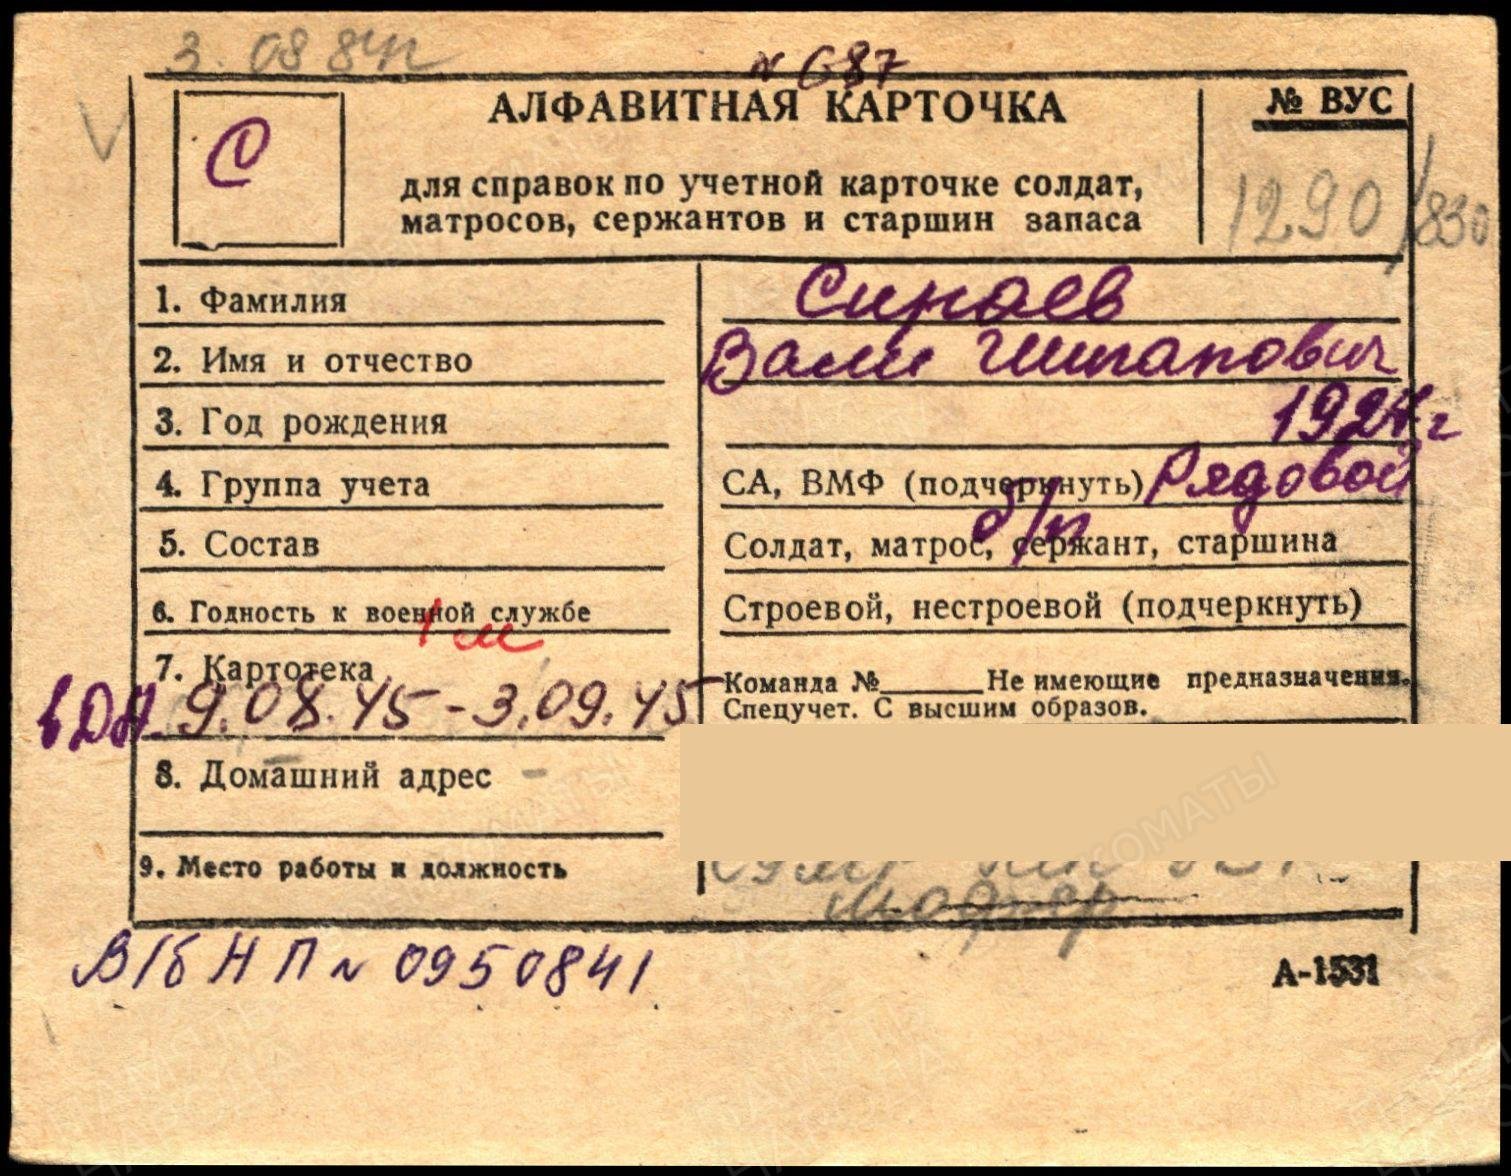 3. 08 84
N 687
АЛФАВИТНАЯ КАРТОЧКА
№ ВУС
С
для справок по учетной карточке солдат,
матросов, сержантов и старшин запаса
1290/830
1. Фамилия Сираев
2. Имя и отчество Вали
3. Год рождения 1924 г
4. Группа учета СА, ВМФ (подчеркнуть) Рядовой
б/п
5. Состав Солдат, матрос, сержант, старшина
6. Годность к военной службе Строевой, нестроевой (подчеркнуть)
7. Картотека Команда №______Не имеющие предназначения.
Спецучет. С высшим образов.
9.08.45 - 3.09.45
8. Домашний адрес
9. Место работы и должность
шофер
В/б Н П N 0950841
А-1531